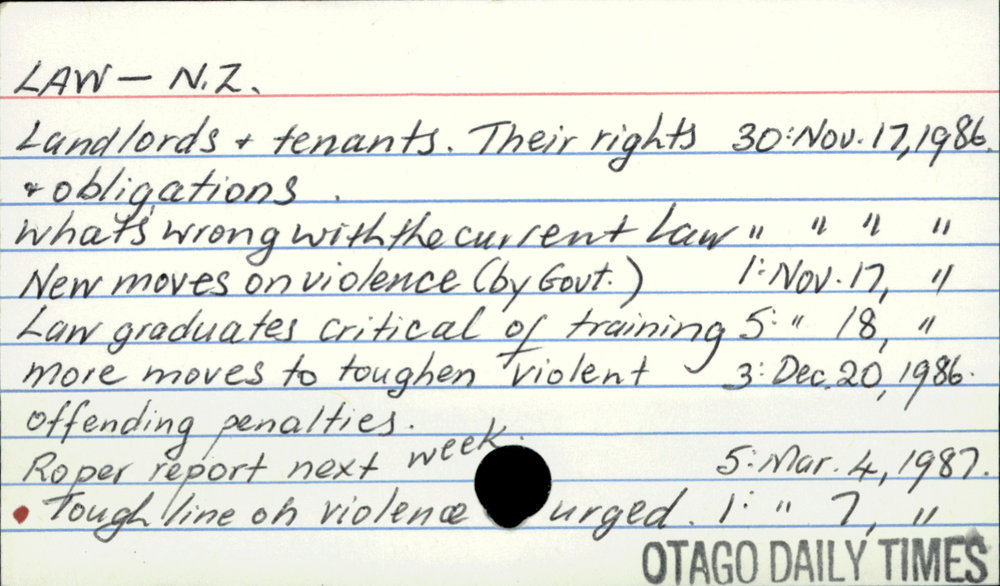 LAW — N.Z.
Landlords + tenants. Their rights 30: Nov. 17, 1986.
+ obligations.
what's wrong with the current Law " " " "
New moves on violence (by Govt.) 1: Nov. 17, "
Law graduates critical of training 5: " 18, "
more moves to toughen violent 3: Dec. 20, 1986.
offending penalties.
Roper report next week. 5: Mar. 4, 1987.
• Tough line on violence urged. 1: " 7, "
OTAGO DAILY TIMES